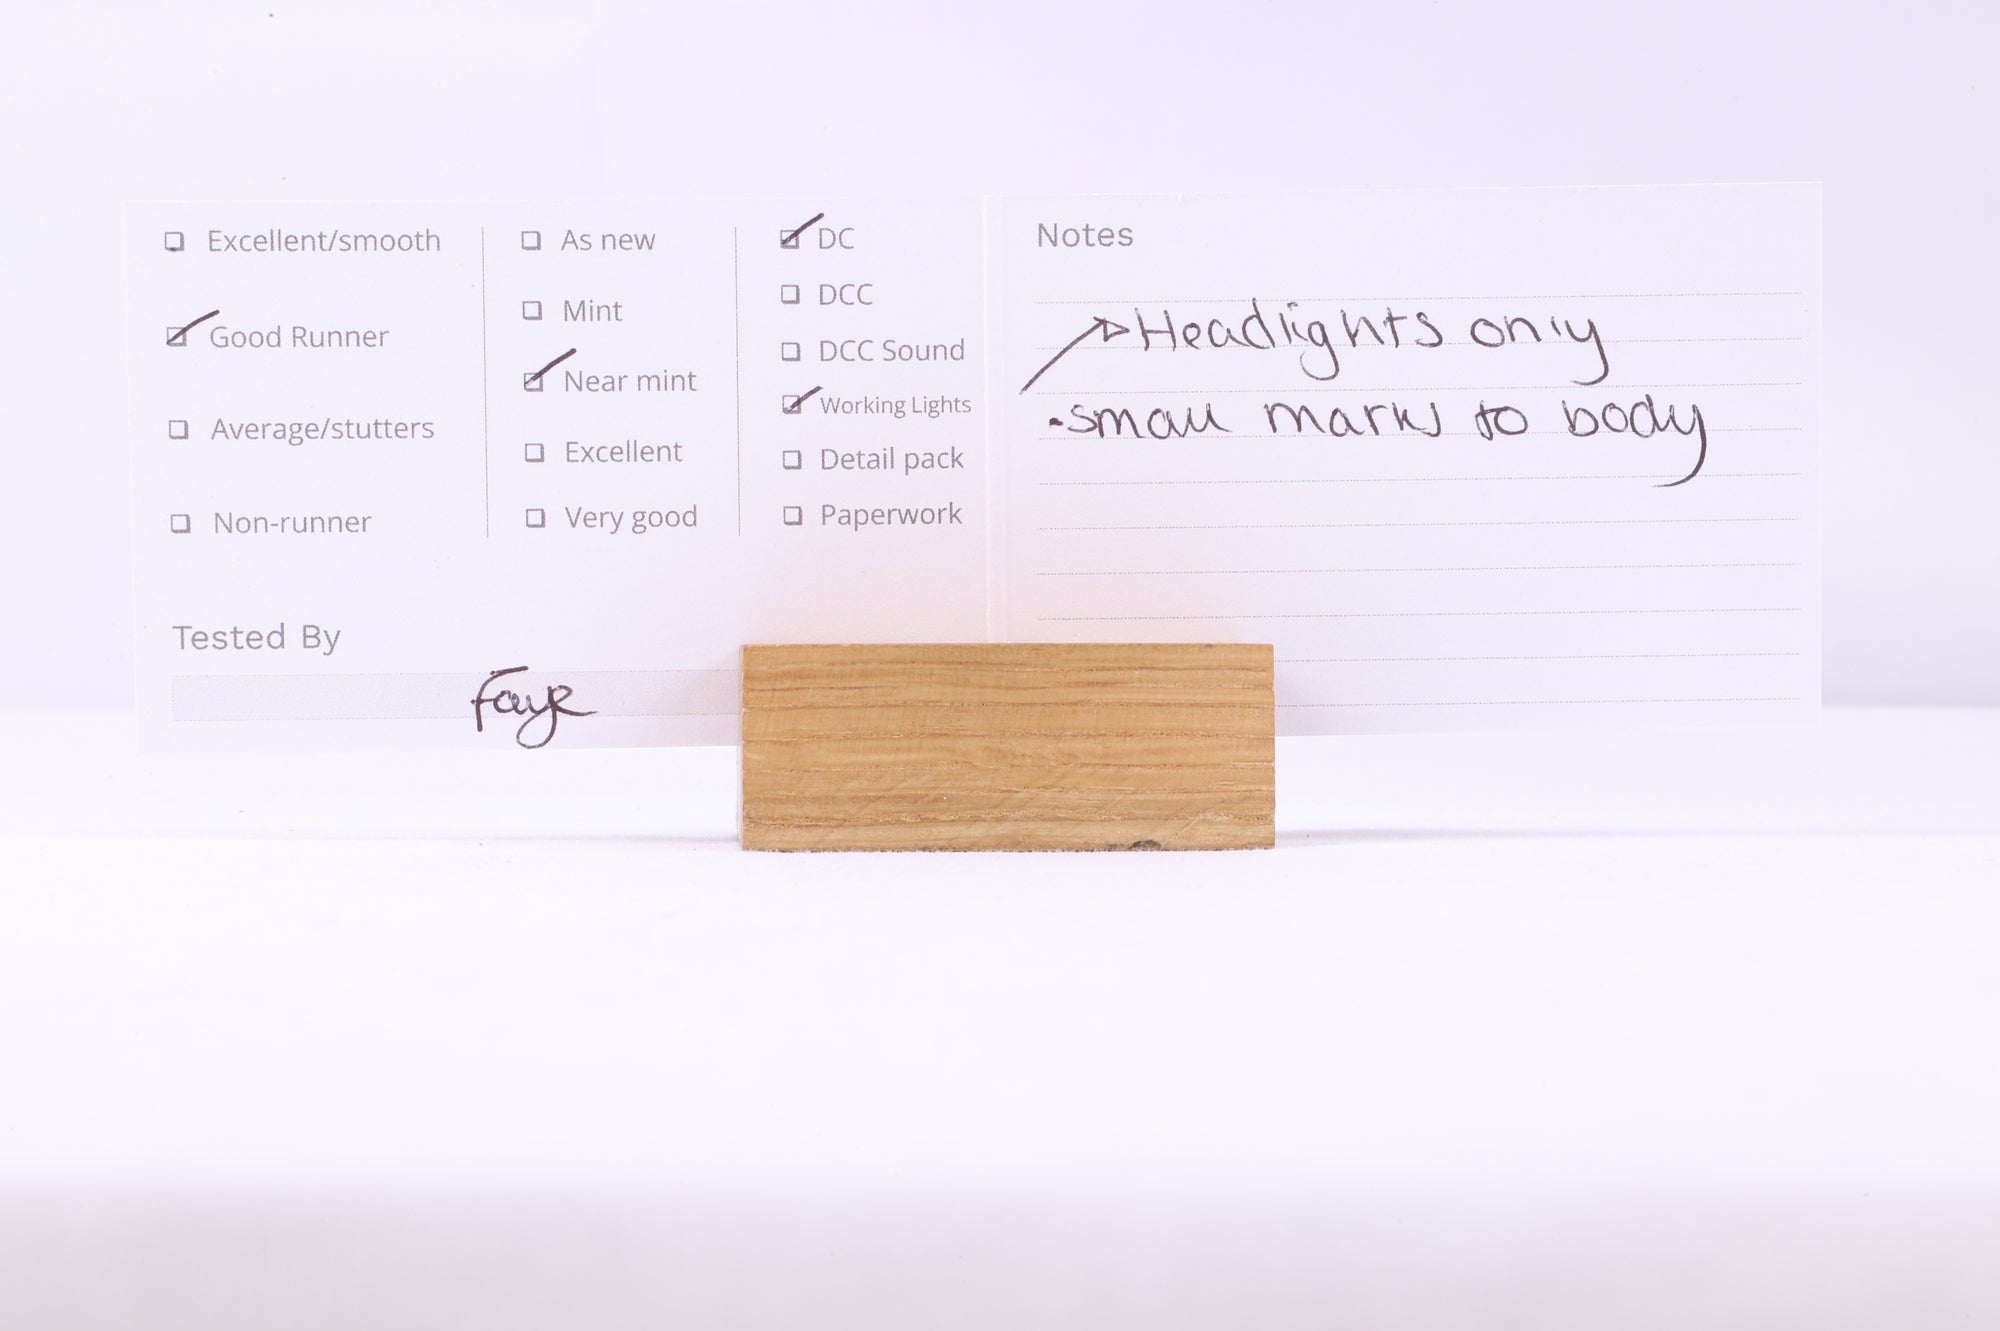 Excellent/smooth
Good Runner
Average/stutters
Non-runner
As new
Mint
Near mint
Excellent
Very good
DC
DCC
DCC Sound
Working Lights
Detail pack
Paperwork
Tested By
Faye
Notes
Headlights only
• small marks to body